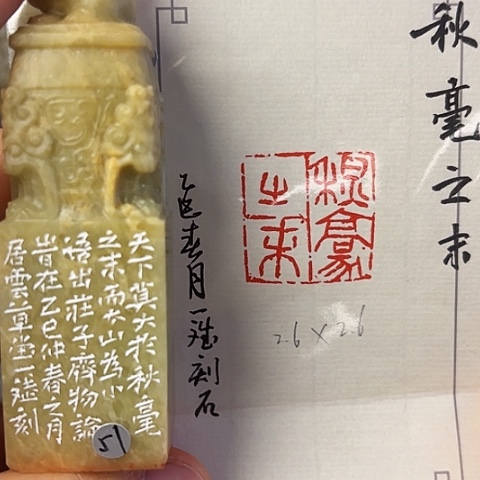 秋毫之末
秋毫
之末
乙巳春月一刻石
2.6 × 2.6
天下莫大於秋毫
之末而大山為小
語出莊子齊物論
旹在乙巳仲春之月
居雲草堂一刻
51